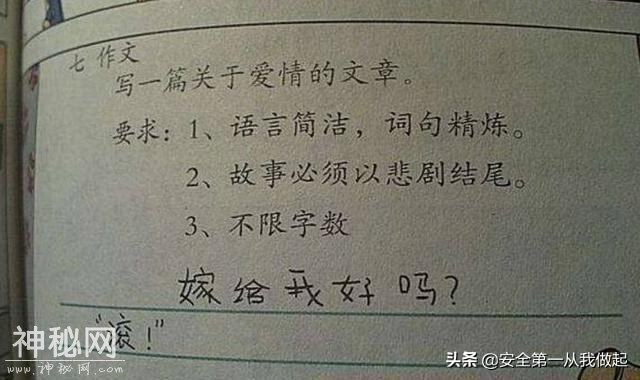 七 作文
写一篇关于爱情的文章。
要求：1、语言简洁，词句精炼。
2、故事必须以悲剧结尾。
3、不限字数
嫁给我好吗？
“滚！”
神秘网
www.神秘网.com
头条 @安全第一从我做起